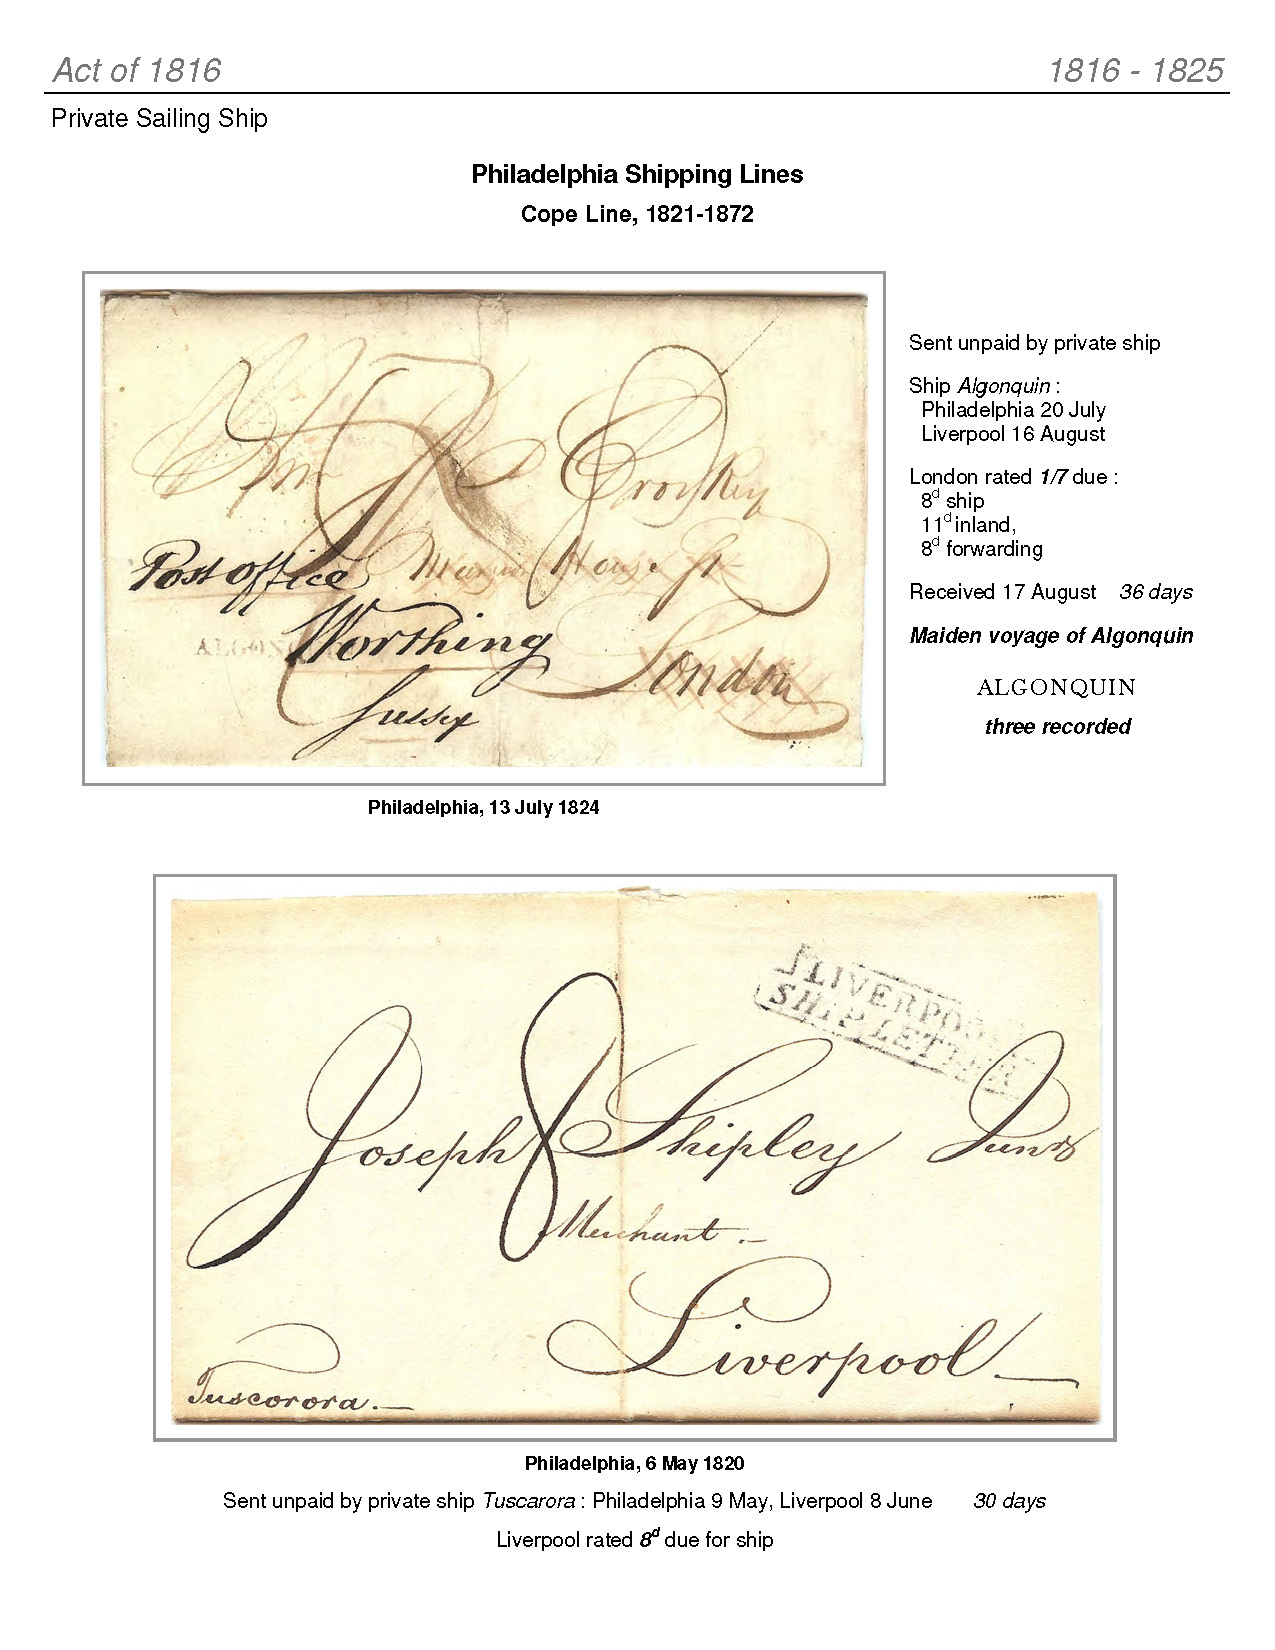 Act of 1816
1816 - 1825
Private Sailing Ship
Philadelphia Shipping Lines
Cope Line, 1821-1872
Wm
Croskey
Post office
House
ALGON
Worthing
London
Sussex
Sent unpaid by private ship
Ship Algonquin :
Philadelphia 20 July
Liverpool 16 August
London rated 1/7 due :
8d ship
11d inland,
8d forwarding
Received 17 August 36 days
Maiden voyage of Algonquin
ALGONQUIN
three recorded
Philadelphia, 13 July 1824
LIVERPOOL
SHIP LETTER
8
Joseph Shipley Junr
Merchant.
Liverpool
Tuscorora.
Philadelphia, 6 May 1820
Sent unpaid by private ship Tuscarora : Philadelphia 9 May, Liverpool 8 June 30 days
Liverpool rated 8d due for ship